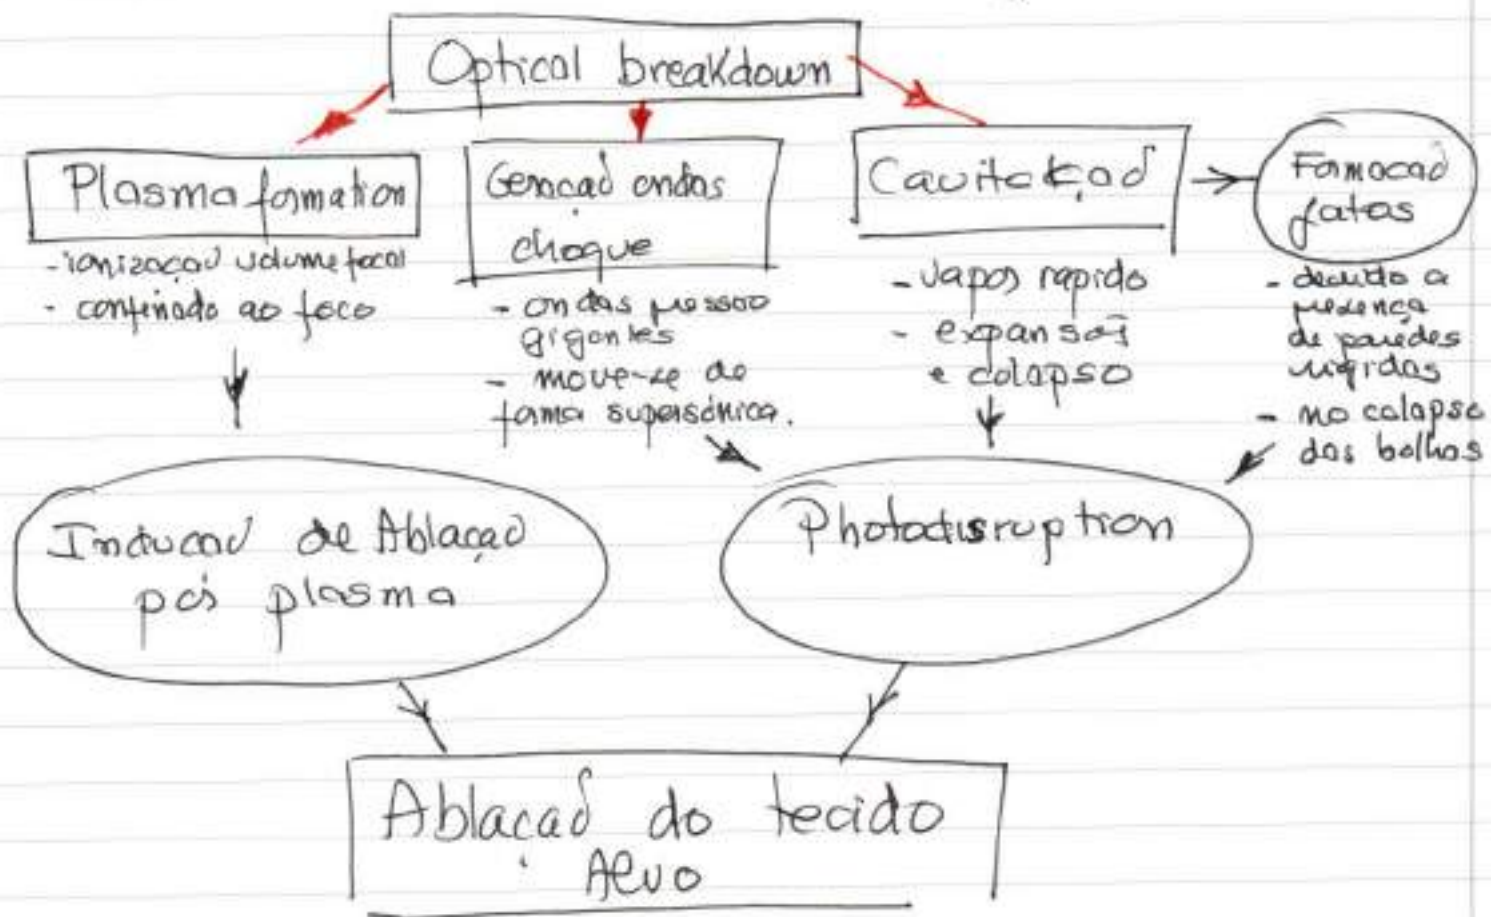 Optical breakdown
Plasma formation
- ionização volume focal
- confinado ao foco
Geração ondas
choque
- ondas pressão
gigantes
- move-se de
forma supersónica.
Cavitação
- vapor rapido
- expansão
e colapso
Formação
jatos
- devido a
presença
de paredes
rigidas
- no colapso
das bolhas
Indução de Ablação
pós plasma
Photodisruption
Ablação do tecido
Alvo